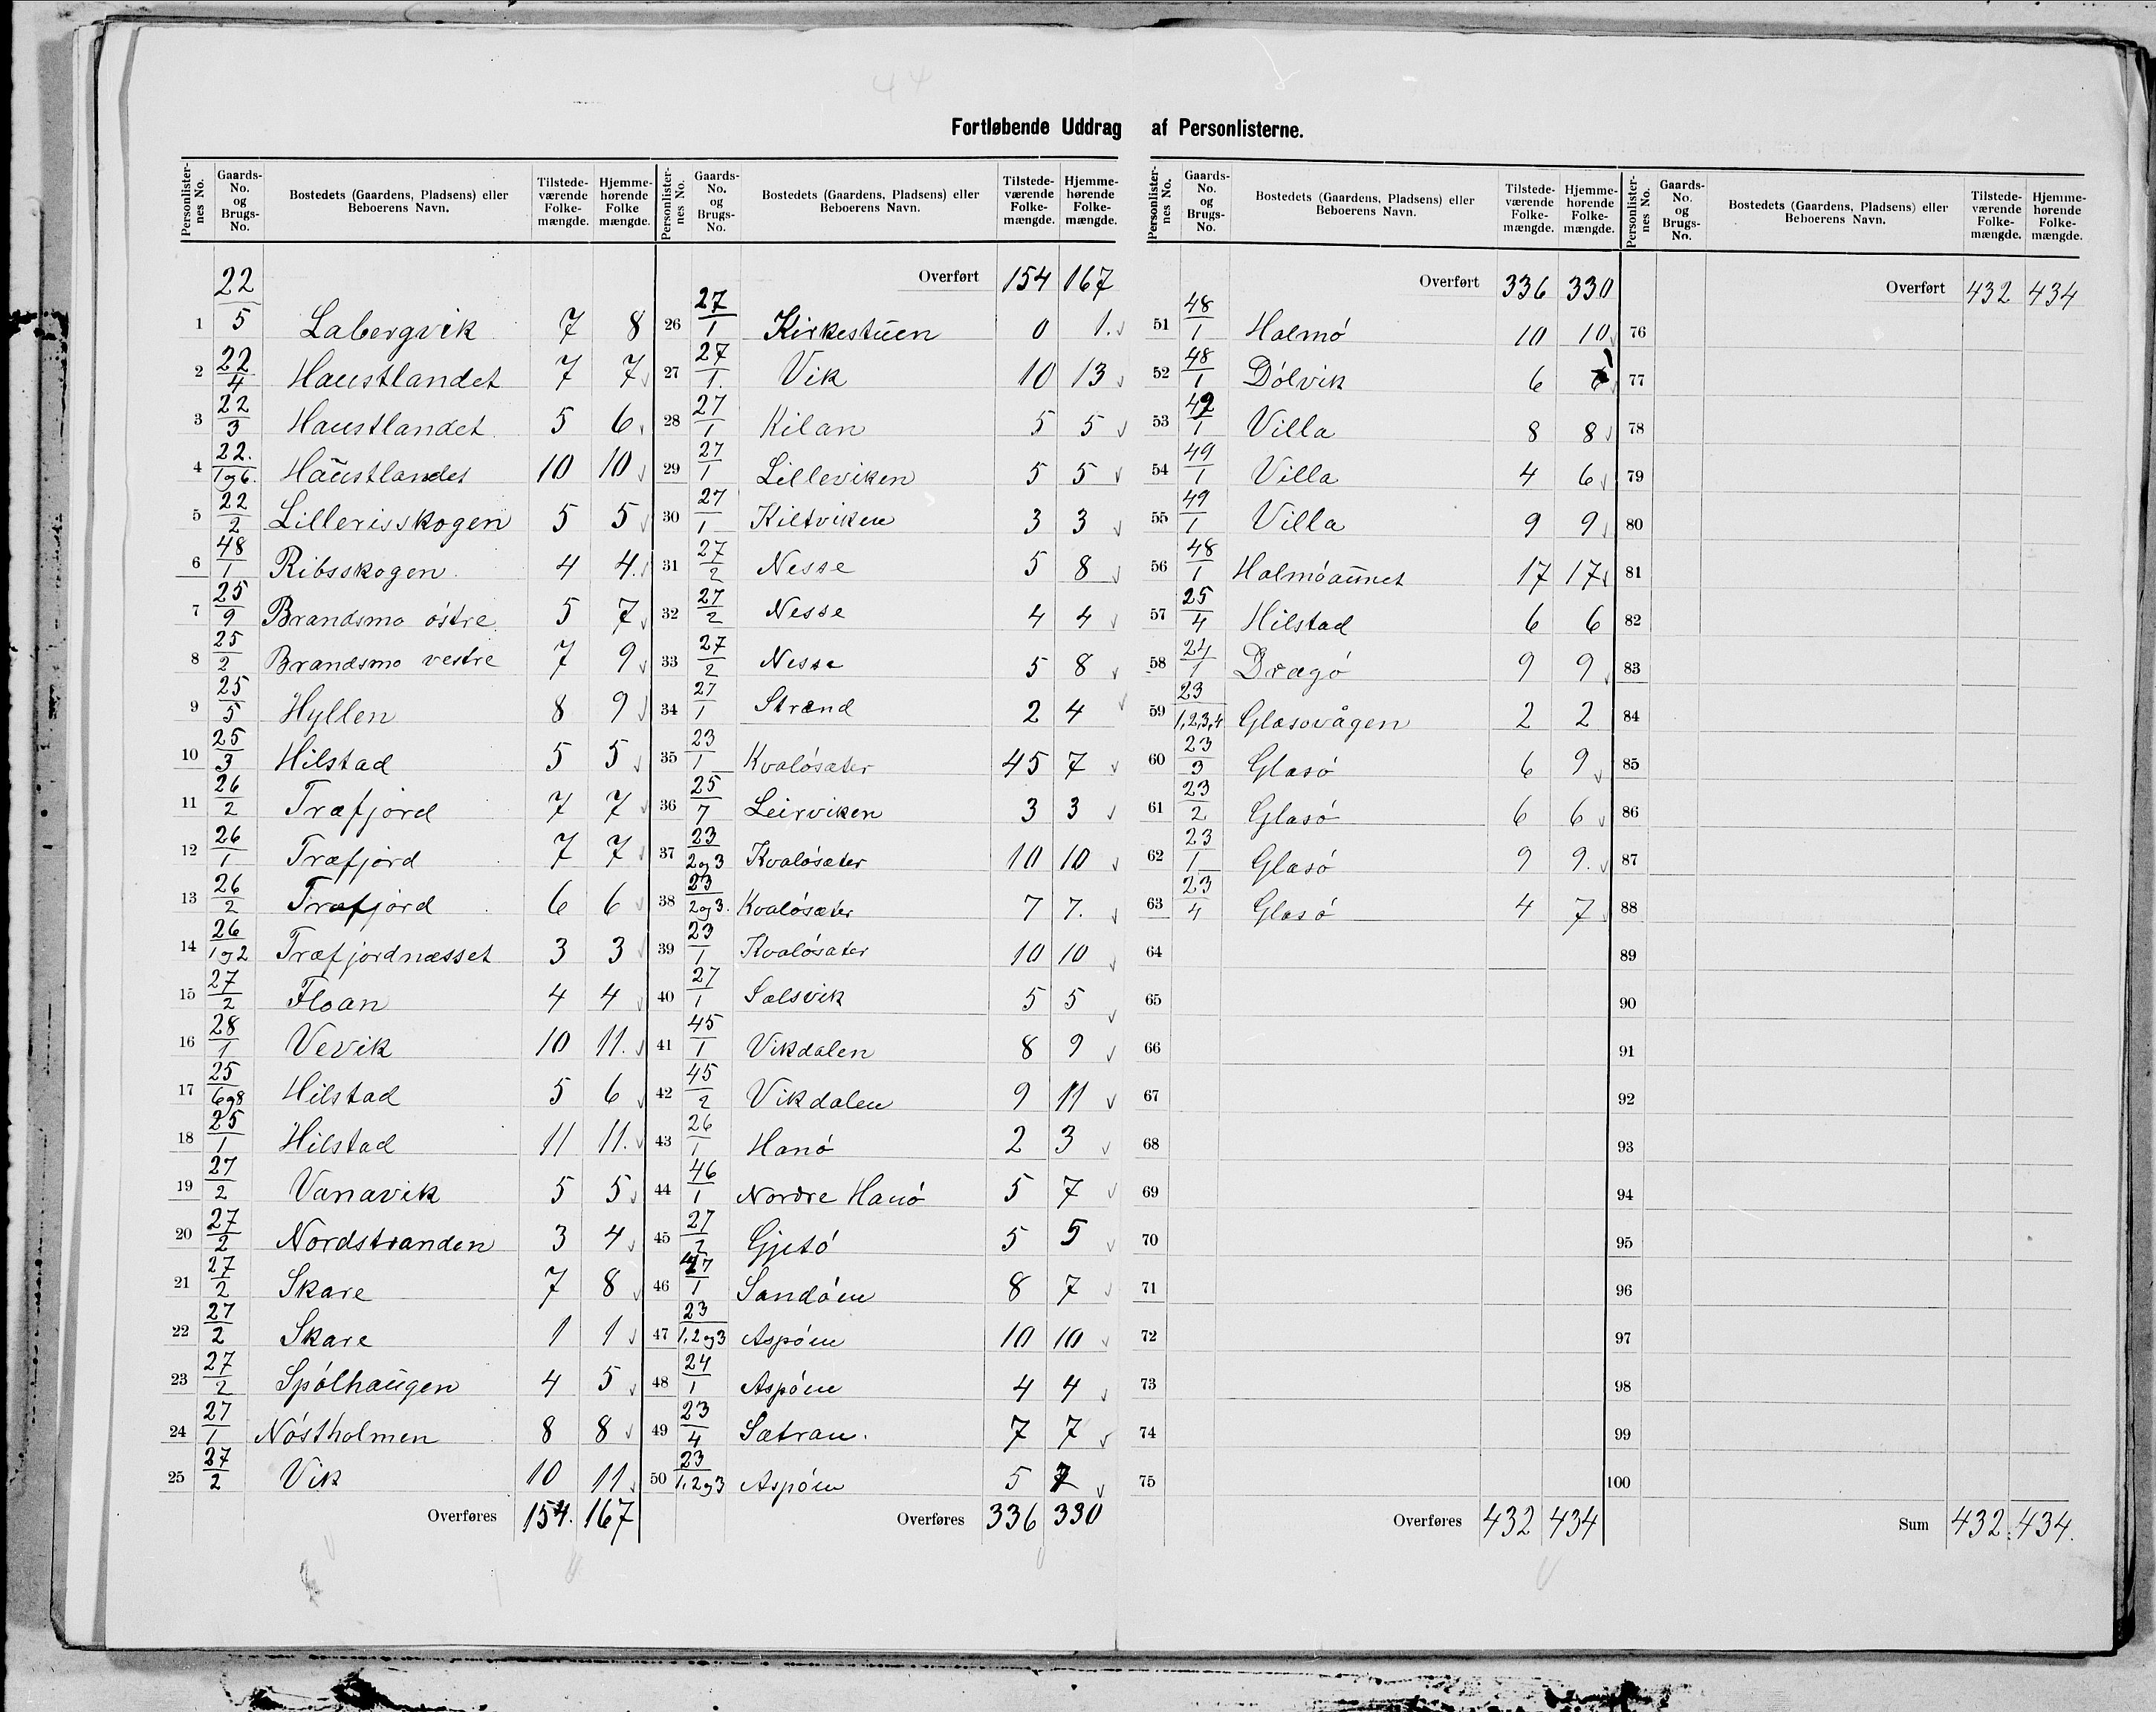 Fortløbende Uddrag af Personlisterne.
Personlisternes No. Gaards-No. og Brugs-No. Bostedets (Gaardens, Pladsens) eller Beboerens Navn. Tilstedeværende Folkemængde. Hjemmehørende Folkemængde.
1 22/5 Labergvik 7 8
2 22/4 Haustlandet 7 7
3 22/3 Haustlandet 5 6
4 22/1og6. Haustlandet 10 10
5 22/2 Lillerisskogen 5 5
6 48/1 Ribsskogen 4 4
7 25/9 Brandsmo östre 5 7
8 25/2 Brandsmo vestre 7 9
9 25/5 Hyllen 8 9
10 25/3 Hilstad 5 5
11 26/2 Træfjord 7 7
12 26/1 Træfjord 7 7
13 26/2 Træfjord 6 6
14 26/1og2 Træfjordnæsset 3 3
15 27/2 Floan 4 4
16 28/1 Vevik 10 11.
17 25/6og8 Hilstad 5 6
18 25/1 Hilstad 11 11.
19 27/2 Vanavik 5 5
20 27/2 Nordstranden 3 4
21 27/2 Skare 7 8
22 27/2 Skare 1 1
23 27/2 Spólhaugen 4 5
24 27/1 Nóstholmen 8 8
25 27/2 Vik 10 11
Overføres 154. 167
Personlisternes No. Gaards-No. og Brugs-No. Bostedets (Gaardens, Pladsens) eller Beboerens Navn. Tilstedeværende Folkemængde. Hjemmehørende Folkemængde.
Overført 154 167
26 27/1 Kirkestuen 0 1.
27 27/1. Vik 10 13
28 27/1 Kilan 5 5
29 27/1 Lilleviken 5 5
30 27/1 Kiltviken 3 3
31 27/2 Nesse 5 8
32 27/2 Nesse 4 4
33 27/2 Nesse 5 8
34 27/1 Strand 2 4
35 23/1 Kvalósæter 45 7
36 25/7 Leirviken 3 3
37 23/2og3 Kvalósæter 10 10
38 23/2og3. Kvalósæter 7 7.
39 23/1 Kvalósæter 10 10
40 27/1 Salsvik 5 5
41 45/1 Vikdalen 8 9
42 45/2 Vikdalen 9 11
43 26/1 Hanó 2 3
44 46/1 Nordre Hanó 5 7
45 27/2 Gjetó 5 5
46 47/1 Sandóen 8 7
47 23/1,2og3 Aspóen 10 10
48 24/1 Aspóen 4 4
49 23/4 Sætran. 7 7
50 23/1,2og3 Aspóen 5 7
Overføres 336 330
Personlisternes No. Gaards-No. og Brugs-No. Bostedets (Gaardens, Pladsens) eller Beboerens Navn. Tilstedeværende Folkemængde. Hjemmehørende Folkemængde.
Overført 336 330
51 48/1 Halmó 10 10
52 48/1 Dólvik 6
53 49/1 Villa 8 8
54 49/1 Villa 4 6
55 49/1 Villa 9 9
56 48/1 Halmóaunet 17 17
57 25/4 Hilstad 6 6
58 24/1 Dragó 9 9
59 23/1,2,3,4 Glasovågen 2 2
60 23/3 Glasó 6 9
61 23/2 Glasó 6 6
62 23/1 Glasó 9 9.
63 23/4 Glasó 4 7
64
65
66
67
68
69
70
71
72
73
74
75
Overføres 432 434
Personlisternes No. Gaards-No. og Brugs-No. Bostedets (Gaardens, Pladsens) eller Beboerens Navn. Tilstedeværende Folkemængde. Hjemmehørende Folkemængde.
Overført 432 434
76
77
78
79
80
81
82
83
84
85
86
87
88
89
90
91
92
93
94
95
96
97
98
99
100
Sum 432 434.